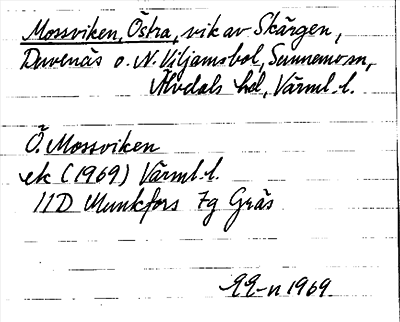 Mossviken, Östra, vik av Skärgen,
Duvenäs o. N. Viljamsbol, Sunnemo sn,
Älvdals hd, Värml. l.
Ö. Mossviken
ek (1969) Värml. l.
11D Munkfors 7g Gräs
1969